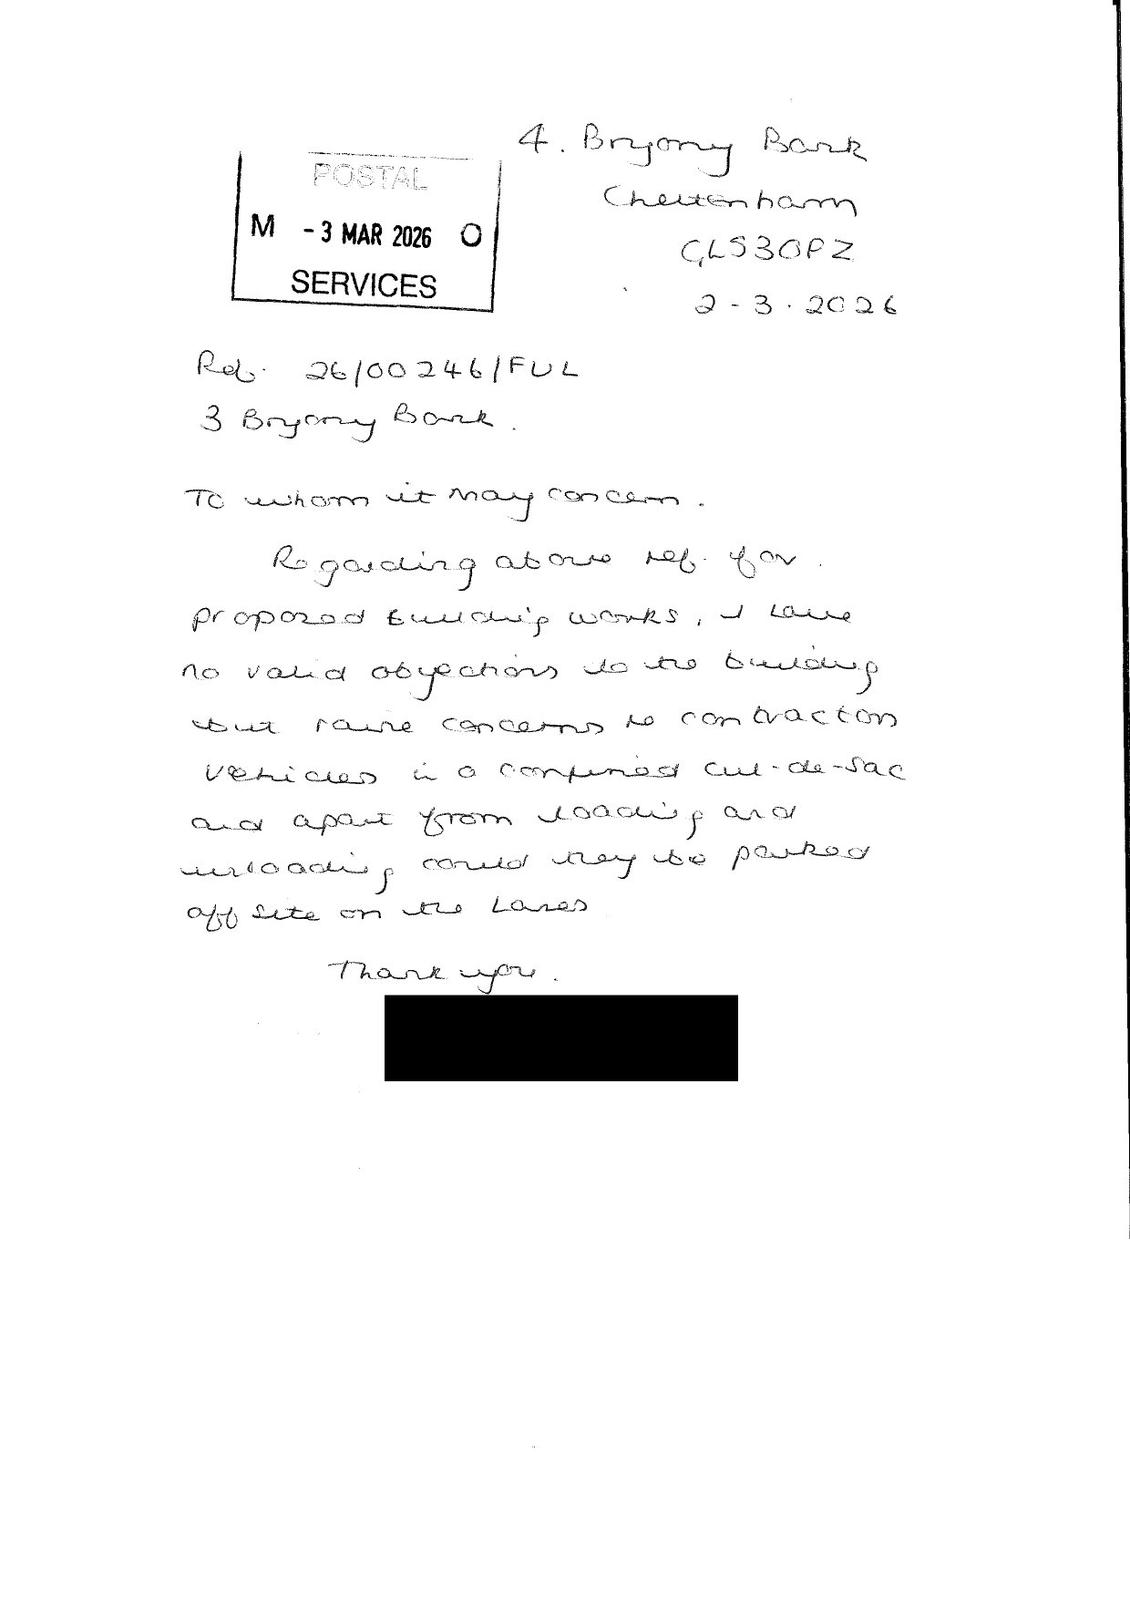 4. Bryony Bank
Cheltenham
GL53 0PZ
2-3.2026
POSTAL
M -3 MAR 2026 O
SERVICES
Ref. 26/00246/FUL
3 Bryony Bank.
To whom it may concern.
Regarding above ref. for
proposed building works, I have
no valid objections to the building
but raise concerns re contractors
vehicles in a confined cul-de-sac
and apart from loading and
unloading could they be parked
off site on the Lanes
Thank you.